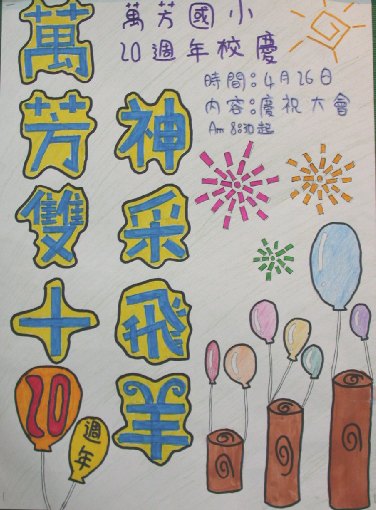 萬芳國小
20週年校慶
時間:4月26日
內容:慶祝大會
Am 8:30起
萬芳雙十
神采飛美
20
週年